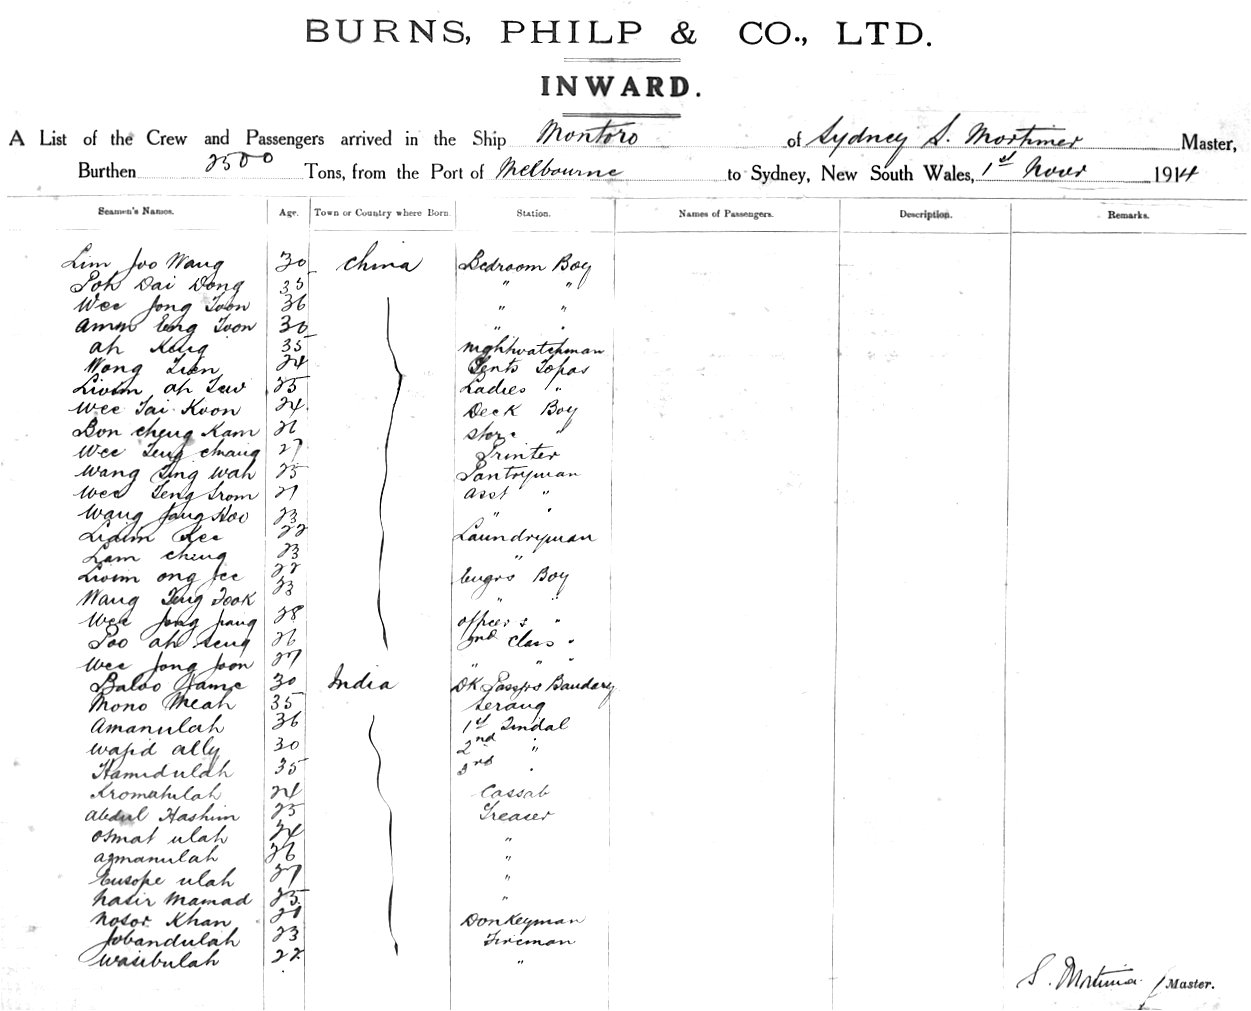 BURNS, PHILP & CO., LTD.
INWARD.
A List of the Crew and Passengers arrived in the Ship Montoro of Sydney S. Mortimer Master,
Burthen 2500 Tons, from the Port of Melbourne to Sydney, New South Wales, 1st Novr 1914
Seamen's Names. Age. Town or Country where Born. Station. Names of Passengers. Description. Remarks.
Lim Joo Wang 30 China Bedroom Boy
Poh Dai Dong 35 " "
Wee Jong Toon 36 " "
Amm Eng Toon 30 " "
Ah Kong 35 Nightwatchman
Wong Tien 24 Gents Topas
Livim Ah Tew 25 Ladies "
Wee Tai Koon 24 Deck Boy
Bon Cheng Kam 21 Store "
Wee Teng Chuang 27 Printer
Wang Ting Wah 25 Pantryman
Wee Teng 21 Asst "
Wang Jong Koo 23 " "
Kee 22 Laundryman
Lam Cheng 23 "
Livim Ong Jee 22 Engrs Boy
Wang Teng Fook 23 " "
Wee Jong Jiang 28 Officers "
Poo Ah Seng 26 2nd Class "
Wee Jong Joon 27 " " "
Baloo Jame 30 India DK Passgrs Baudary
Mono Meah 35 Serang
Amanulah 36 1st Tindal
Wajid Ally 30 2nd "
Hamidulah 35 3rd "
Kromatulah 24 Cassab
Abdul Hashim 25 Greaser
Osmat Ulah 24 "
Azmanulah 26 "
Eusope Ulah 27 "
Nasir Mamad 25 "
Nosor Khan 21 Donkeyman
Jobandulah 23 Fireman
Wasibulah 22 "
S. Mortimer Master.